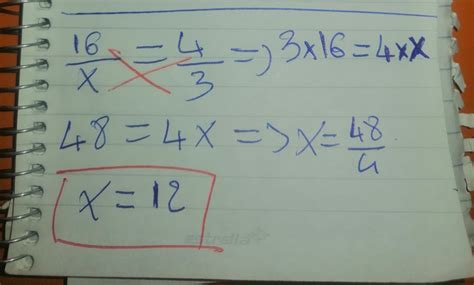 16/x = 4/3 => 3×16 = 4×x
48 = 4x => x = 48/4
x = 12
estrella